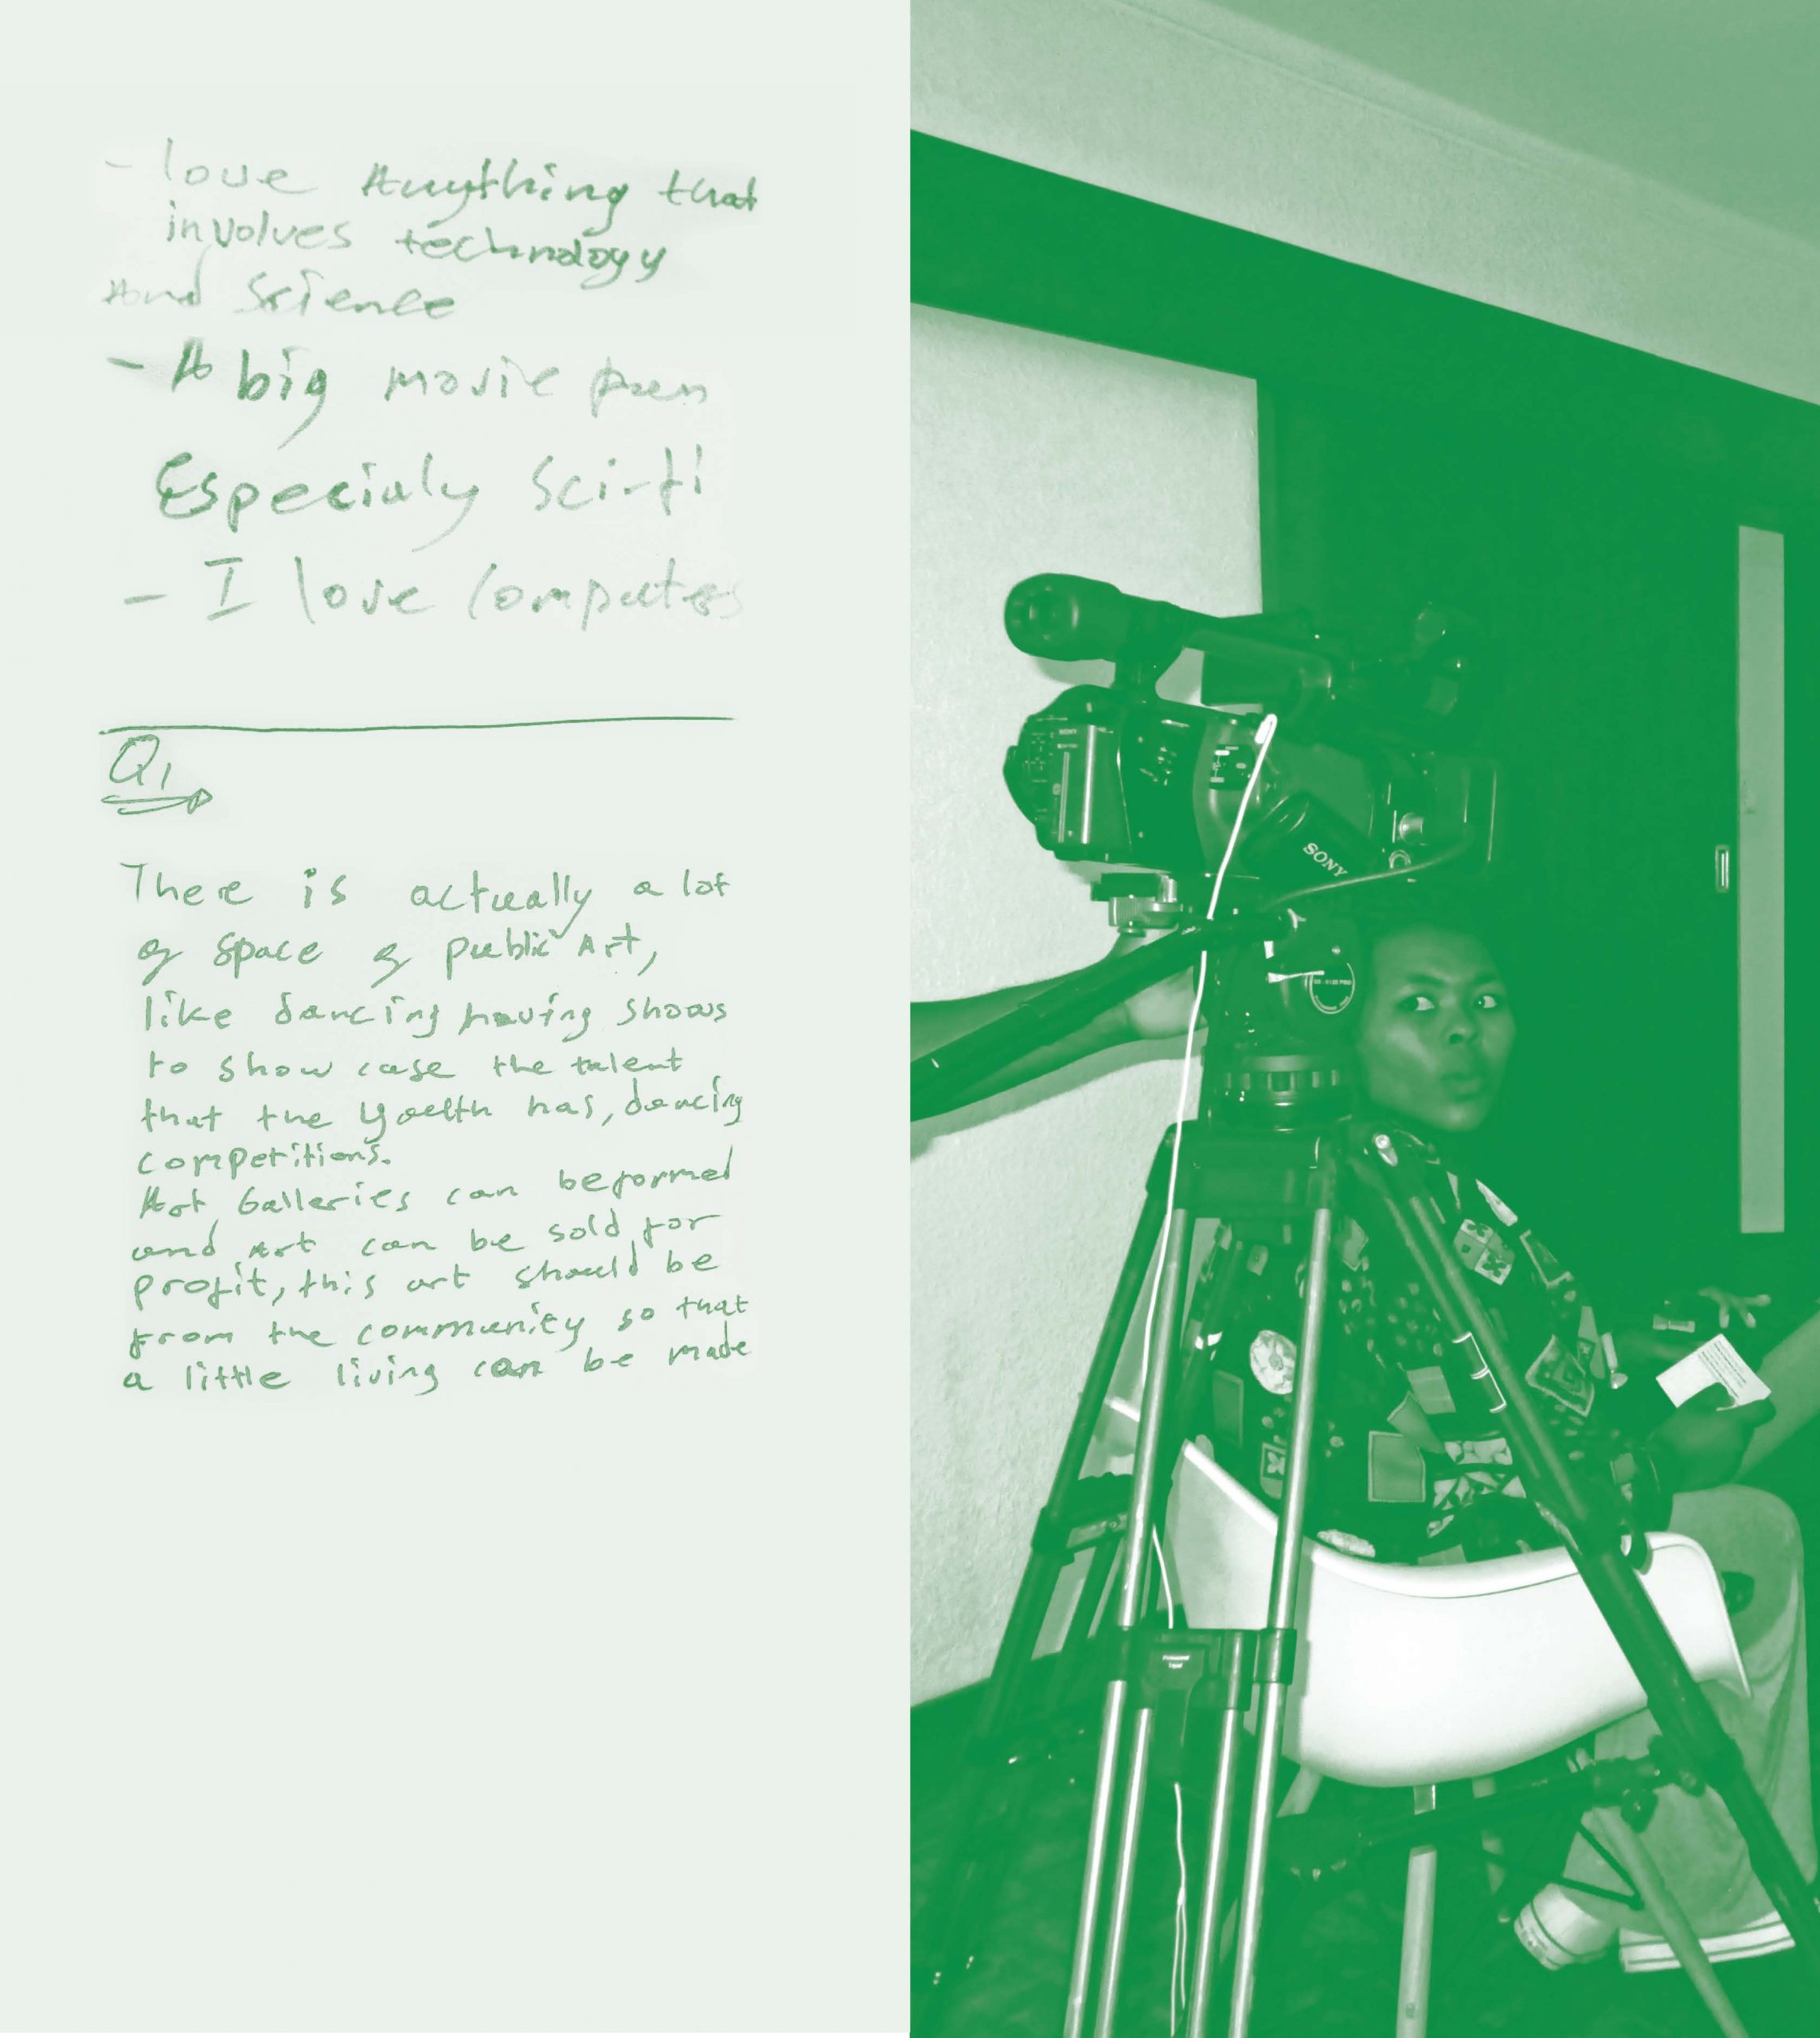 - love Anything that
involves technology
And Science
- A big movie fan
Especialy sci-fi
- I love Computers
Q1
There is actually a lot
of space of public Art,
like dancing having shows
to show case the talent
that the youth has, dancing
competitions.
Art Galleries can be formed
and Art can be sold for
profit, this art should be
from the community so that
a little living can be made
SONY